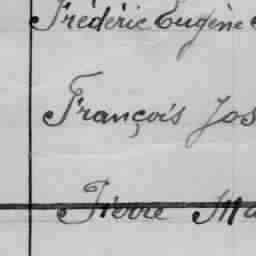 Frédéric Eugène
François Jos
Pierre Ma